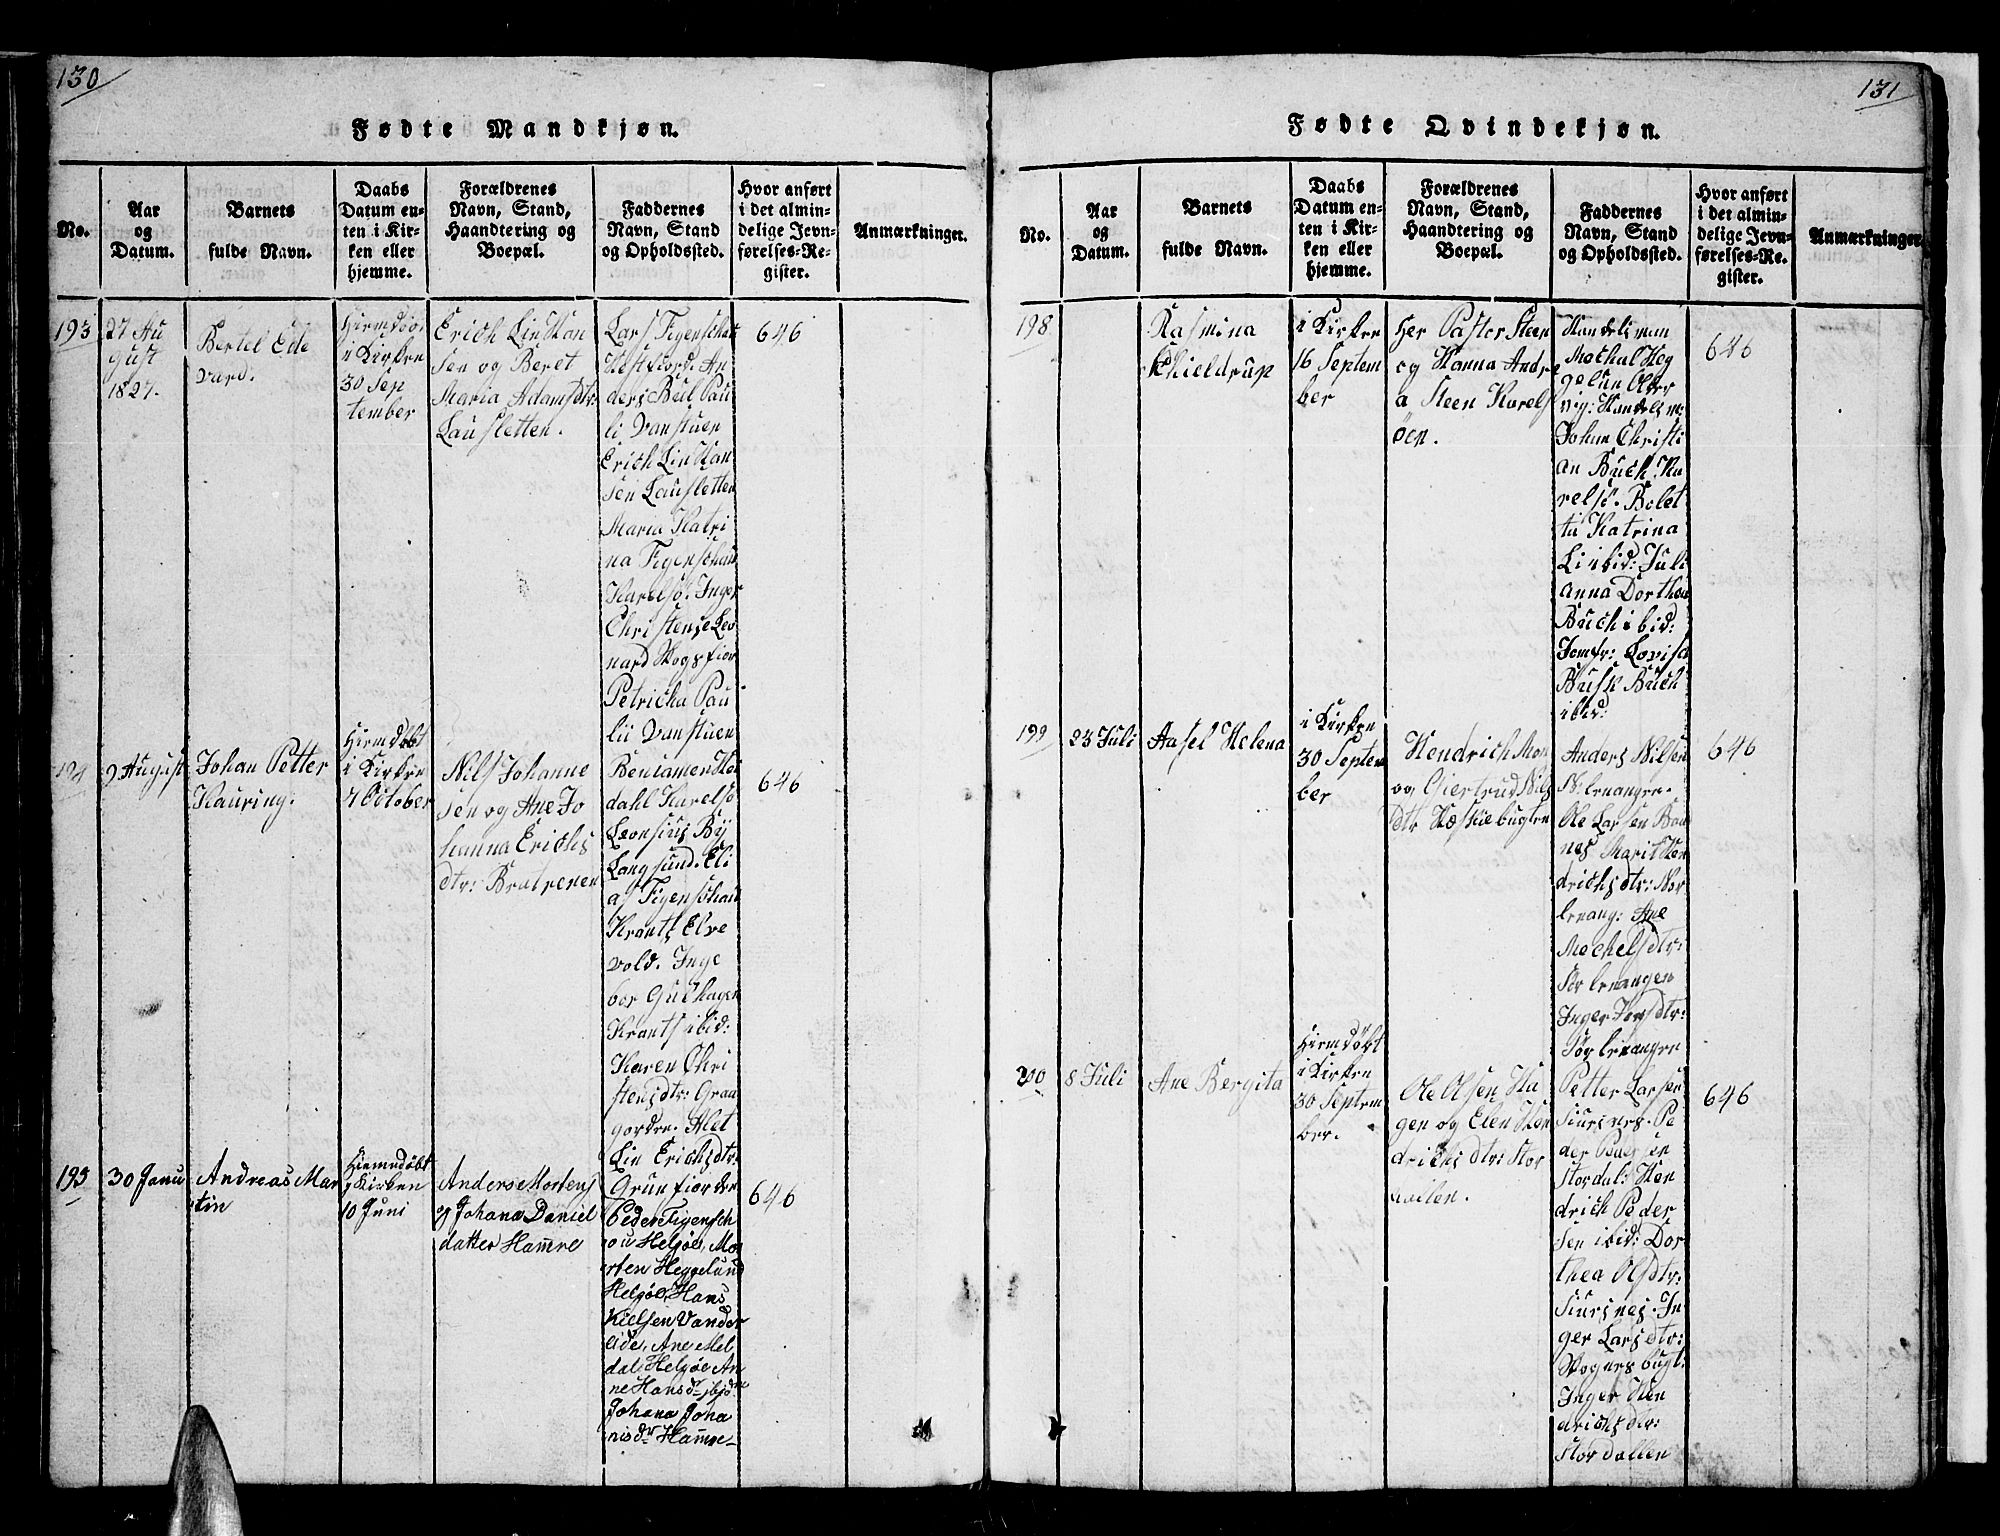 130
Fødte Mandkjøn.
No.
Aar
og
Datum.
Barnets
fulde Navn.
Daabs
Datum en-
ten i Kir-
ken eller
hjemme.
Forældrenes
Navn, Stand,
Haandtering og
Boepæl.
Faddernes
Navn, Stand
og Opholdssted.
Hvor anført
i det almin-
delige Jevn-
førelses-Re-
gister.
Anmærkninger.
193
27 Au
gust
1827.
Bertel Ede
vard.
i Kirken
30 Sep
tember
Erich Lin Han
sen og Beret
Maria Adamsdtr:
Lausletten.
Lars Figenschau
Hestfiord. An
ders Bul Pau
li Vanstuen
Erich Lin Han
sen Lausletten
Maria Katri
na Figenschau
Karelsö. Inger
Christense Leo
nard Skogsfior
Petricka Pau
lii Vanstuen
646
194
9 August
Johan Petter
Hauring.
Hiemdøbt
i Kirken
7 October
Nils Johanne
sen og Ane Jo
hanna Erichs
dtr: Bratrenen
Beniamen Hei
dahl Karelsö
Leonsius By
Langsund. Eli
as Figenschau
Krants Elve
vold. Inge
bor Guehagen
Krants ibid:
Karen Chri
stensdtr: Gran
gordre. Alet
Lin Erichsdtr:
Grunfiorden
646
195
30 Janu
Andreas Mar
tin
Hiemmdöbt
i Kirken
10 Juni
Anders Mortens
og Johana Daniel
datter Hamre
Peder Figensch
ou Helgöe, Mo
rten Heggelund
Helgöe, Hans
Nielsen Vander
eide, Ane Mel
dal Helgöe An
ne Hansdr ibidm
Johana Joha
nisdr Hamre
646
131
Fødte Qvindekjøn.
No.
Aar
og
Datum.
Barnets
fulde Navn.
Daabs
Datum en-
ten i Kir-
ken eller
hjemme.
Forældrenes
Navn, Stand,
Haandtering og
Boepæl.
Faddernes
Navn, Stand
og Opholdssted.
Hvor anført
i det almin-
delige Jevn-
førelses-Re-
gister.
Anmærkninger
198
Rasmina
Schieldrup
i Kirken
16 Septem
ber
Her Pastor Steen
og Hanna Andre
a Steen Karels
öen.
Handelsman
Mechal Heg
gelun Older
vig: Handelsm:
Johan Christi
an Buch. Ka
relsö. Bolet
ta Katrina
Li ibid: Juli
anna Dorthea
Buch ibid:
Jomfr: Lovisa
Busk Buch
ibid:
646
199
23 Juli
Aasel Helena
i Kirken
30 Septem
ber
Hendrich Mon
og Giertrud Nils
dtr Hæskiebugten
Anders Nilsen
N: Lenangre.
Ole Larsen Bau
nes Marit Hen
drichsdtr: Nor
lenang: Ane
Mechelsdtr:
Sör Lenangen
Inger Jonsdtr:
Sör Lenangen
646
200
8 Juli
Ane Bergita
Hiemdøbt
i Kirken
30 Septem
ber.
Ole Olsen Ha
gen og Elen Hen
drichsdtr: Stor
dailen.
Petter Larsen
Siursnes. Pe
der Pedersen
Stordal: Hen
drich Peder
sen ibid: Dor
thea Olsdtr:
Siursnes. In
ger Larsdtr:
Vognesbugt:
Inger Hen
drichsdtr:
Stordallen
646